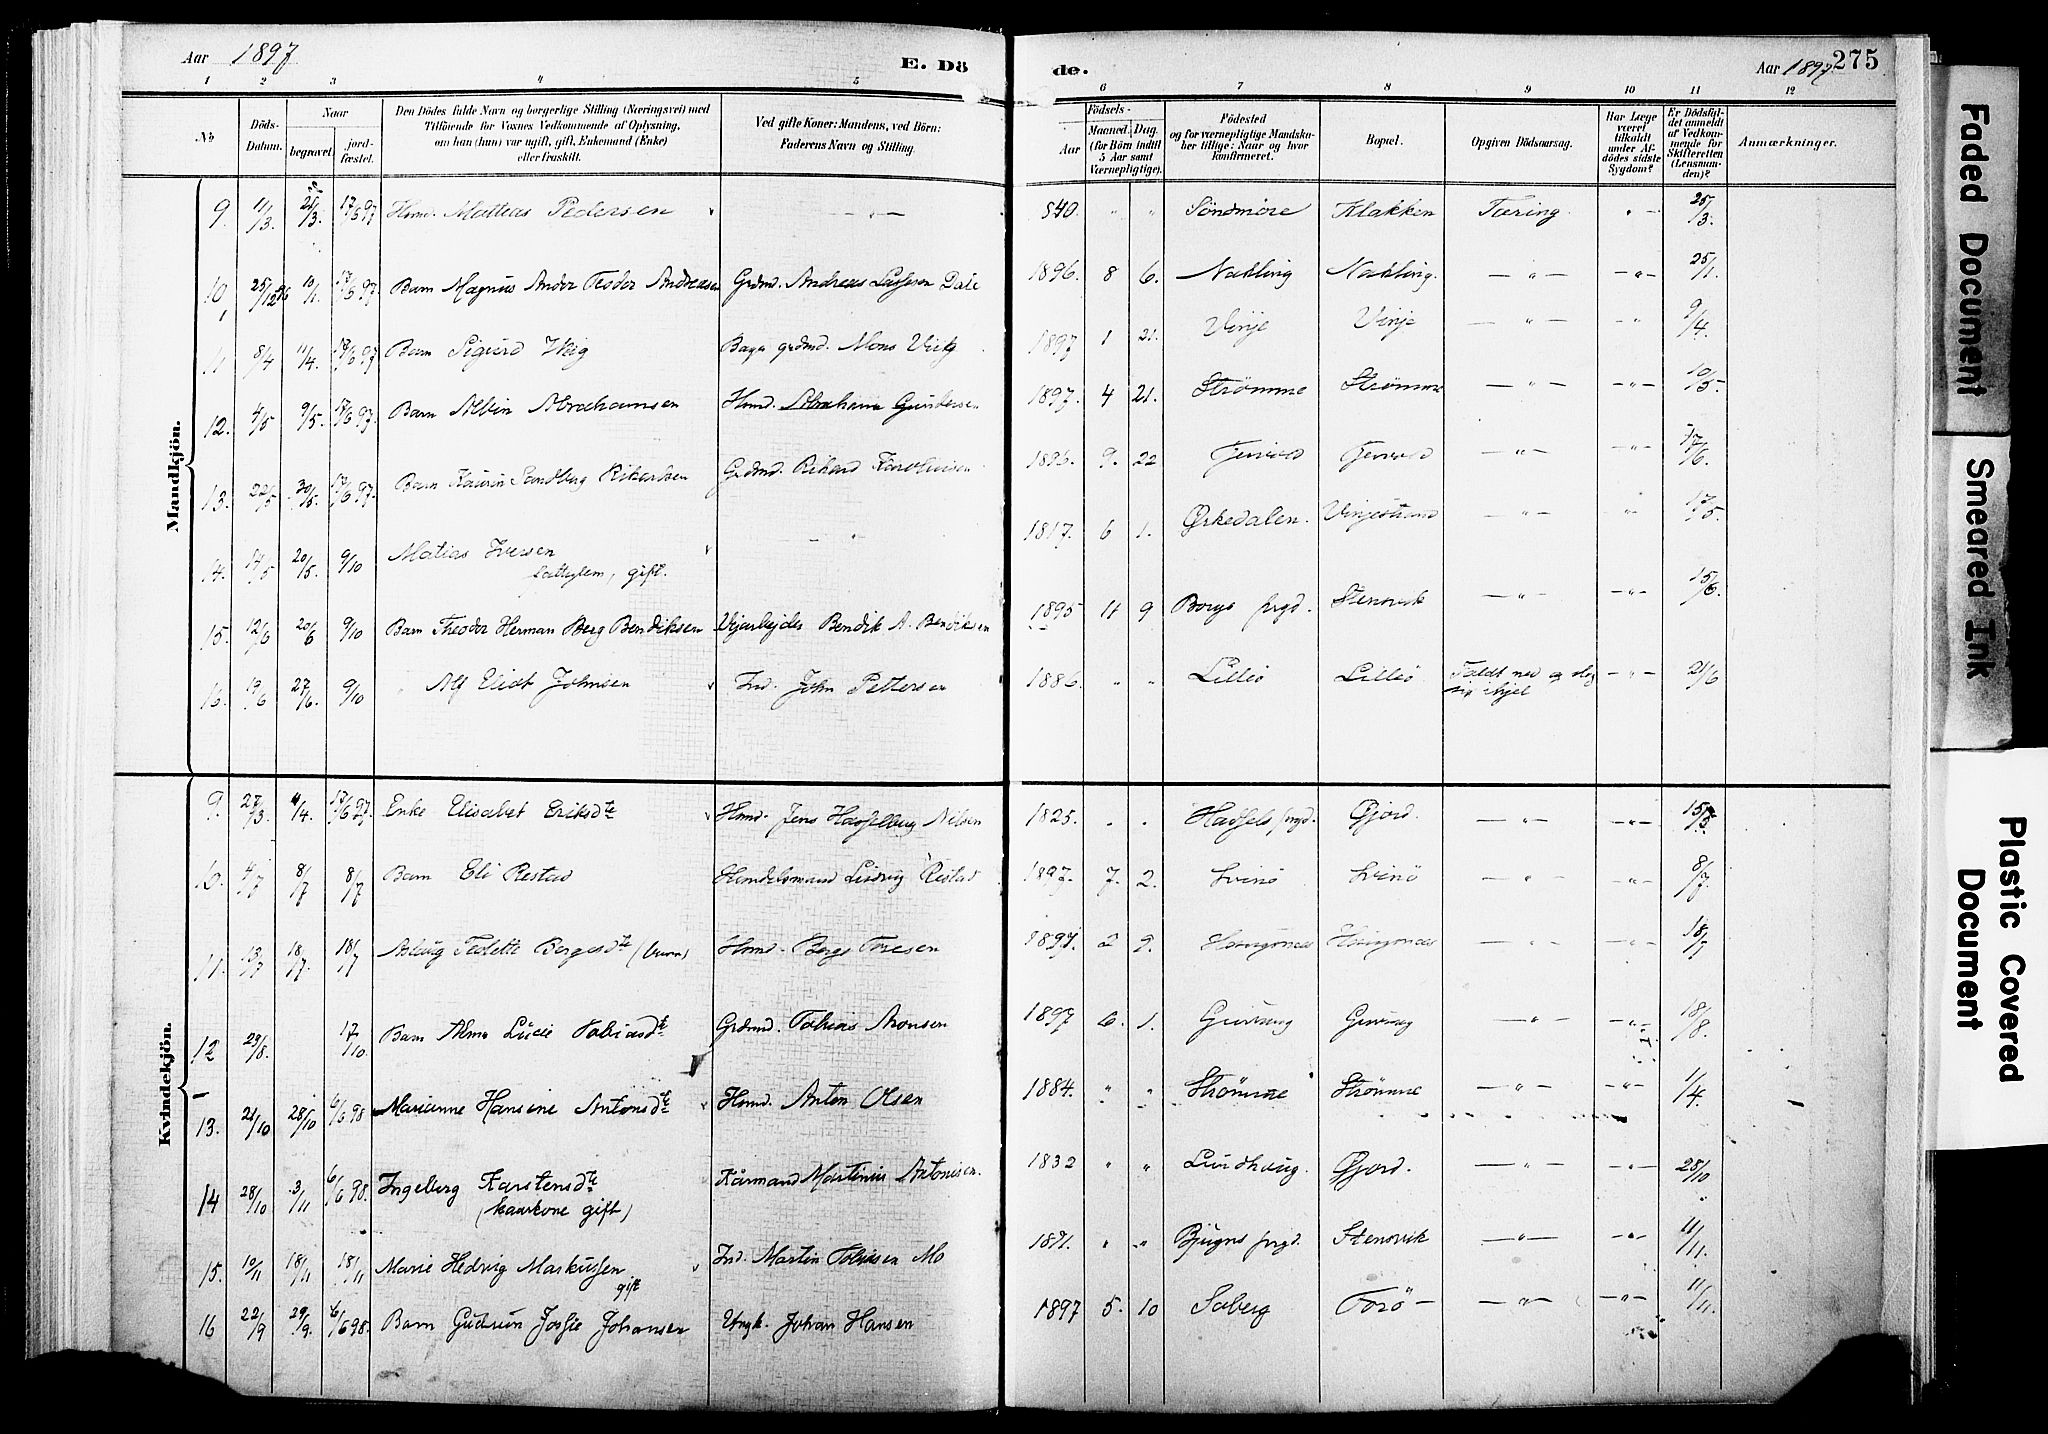 Aar 1897
E. Dö
de.
Aar 1897
275
1 2 3 4 5
6 7 8 9 10 11 12
No
Döds-Datum.
Naar
begravet.
jord-fæstet.
Den Dödes fulde Navn og borgerlige Stilling (Næringsvei) med
Tilföiende for Voxnes Vedkommende af Oplysning,
om han (hun) var ugift, gift, Enkemand (Enke)
eller fraskilt.
Ved gifte Koner: Mandens, ved Börn:
Faderens Navn og Stilling.
Födsels-
Aar
Maaned. Dag.
(for Börn indtil
5 Aar samt
Værnepligtige).
Födested
og for værnepligtige Mandska-
ber tillige: Naar og hvor
konfirmeret.
Bopæl.
Opgiven Dödsaarsag.
Har Læge
været
tilkaldt
under Af-
dödes sidste
Sygdom?
Er Dödsfal-
det anmeldt
af Vedkom-
mende for
Skifteretten
(Lensman-
den)?
Anmærkninger.
Mandkjön.
9. 11/3. 17/6 97 Hmd. Mattias Pedersen 840. " " Söndmöre Klakken Tæring. 25/3.
10, 25/12 96 10/1. 17/6 97 Barn Magnus Ander Teodor Andreasen Grdmd. Andreas Dale 1896. 8 6. Nakling Nakling. — " — — " — 25/1.
11 8/4 11/4. 17/6 97 Barn Sigurd Grdmd. Mons 1897 1 21. Vinje Vinje — " — — " — 9/4.
12. 4/5 9/5. 17/6 97 Barn Albin Abrahamsen Hmd. Abraham Gundersen 1897. 4 21. Strømme Strømme — " — — " — 10/5
13. 22/5 30/5. 17/6 97. Barn Sandberg Rikardsen Grdmd. Rikard 9. 22 — " — — " — 17/6.
14. 14/5 20/5. 9/10 Matias Iversen 1817. 6 1. Ørkedalen. Vinjestrand — " — — " — 17/5.
gift.
15. 12/6 20/6 9/10 Barn Theodor Herman Berg Bendiksen Vejarbejder Bendik A. Bendiksen 1895 11 9 Borgs prgd. Stensvik — " — — " — 15/6.
16. 19/6 27/6. 9/10 " Alf Elidt Johnsen Ind. John Pettersen 1886. " " Lillö Lillö Faldt ned og slog — " — 21/6
sig ihjel
Kvindekjön.
9. 27/3. 4/4. 17/6 97. Enke Elisabet Eriksdte Hmd. Jens Hasselberg Nilsen 1825. " " Hadsels prgd. Gjord. — " — — " —
10. 4/7 8/7 8/7 Barn Eli Restad Handelsmand Ludvig Restad 1897. 7. 2. Svinö Svinö — " — — " — 8/7.
11. 13/7 18/7. 18/7 Aslaug Teolette Bergesdte (barn) Hmd. Berge Toresen 1897. 2 9. — " — — " — 18/7
12 29/8. 17/10. Barn Alma Lucie Tobiasdte Grdmd. Tobias Aronsen 1897 6. 1. — " — — " — 18/8.
13. 21/10 28/10 6/6 98 Marianne Hansine Antonsdte Hmd. Anton Olsen 1884. " " Strömme Strömme — " — — " — 1/4.
14 28/10 3/11 6/6 98. Ingeberg Karstensdte Kårmand Martinus Antonisen. 1832 " " Lundhaug. Gjord. — " — — " — 28/10
(kaarkone gift)
15. 10/11 18/11 18/11 Marie Hedvig Markussen Ind. Martin Tobiasen Mo 1871. " " Bjugns prgd. Stensvik — " — — " — 11/11.
gift
16 22/9 29/9. 6/6 98. Barn Gudrun Josfie Johansen Ungk. Johan Hansen 1897 5. 10 Soberg Torö — " — — " — 11/11.
Faded Document
Smeared Ink
Plastic Covered
Document